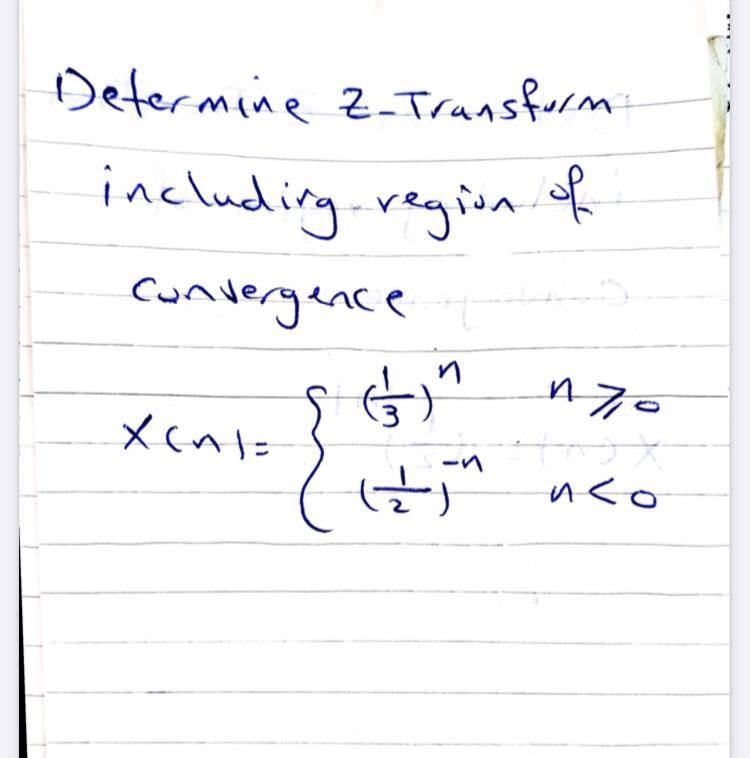 Determine Z-Transform
including region of
convergence
X(n)= { (1/3)^n n ≥ 0
(1/2)^-n n < 0